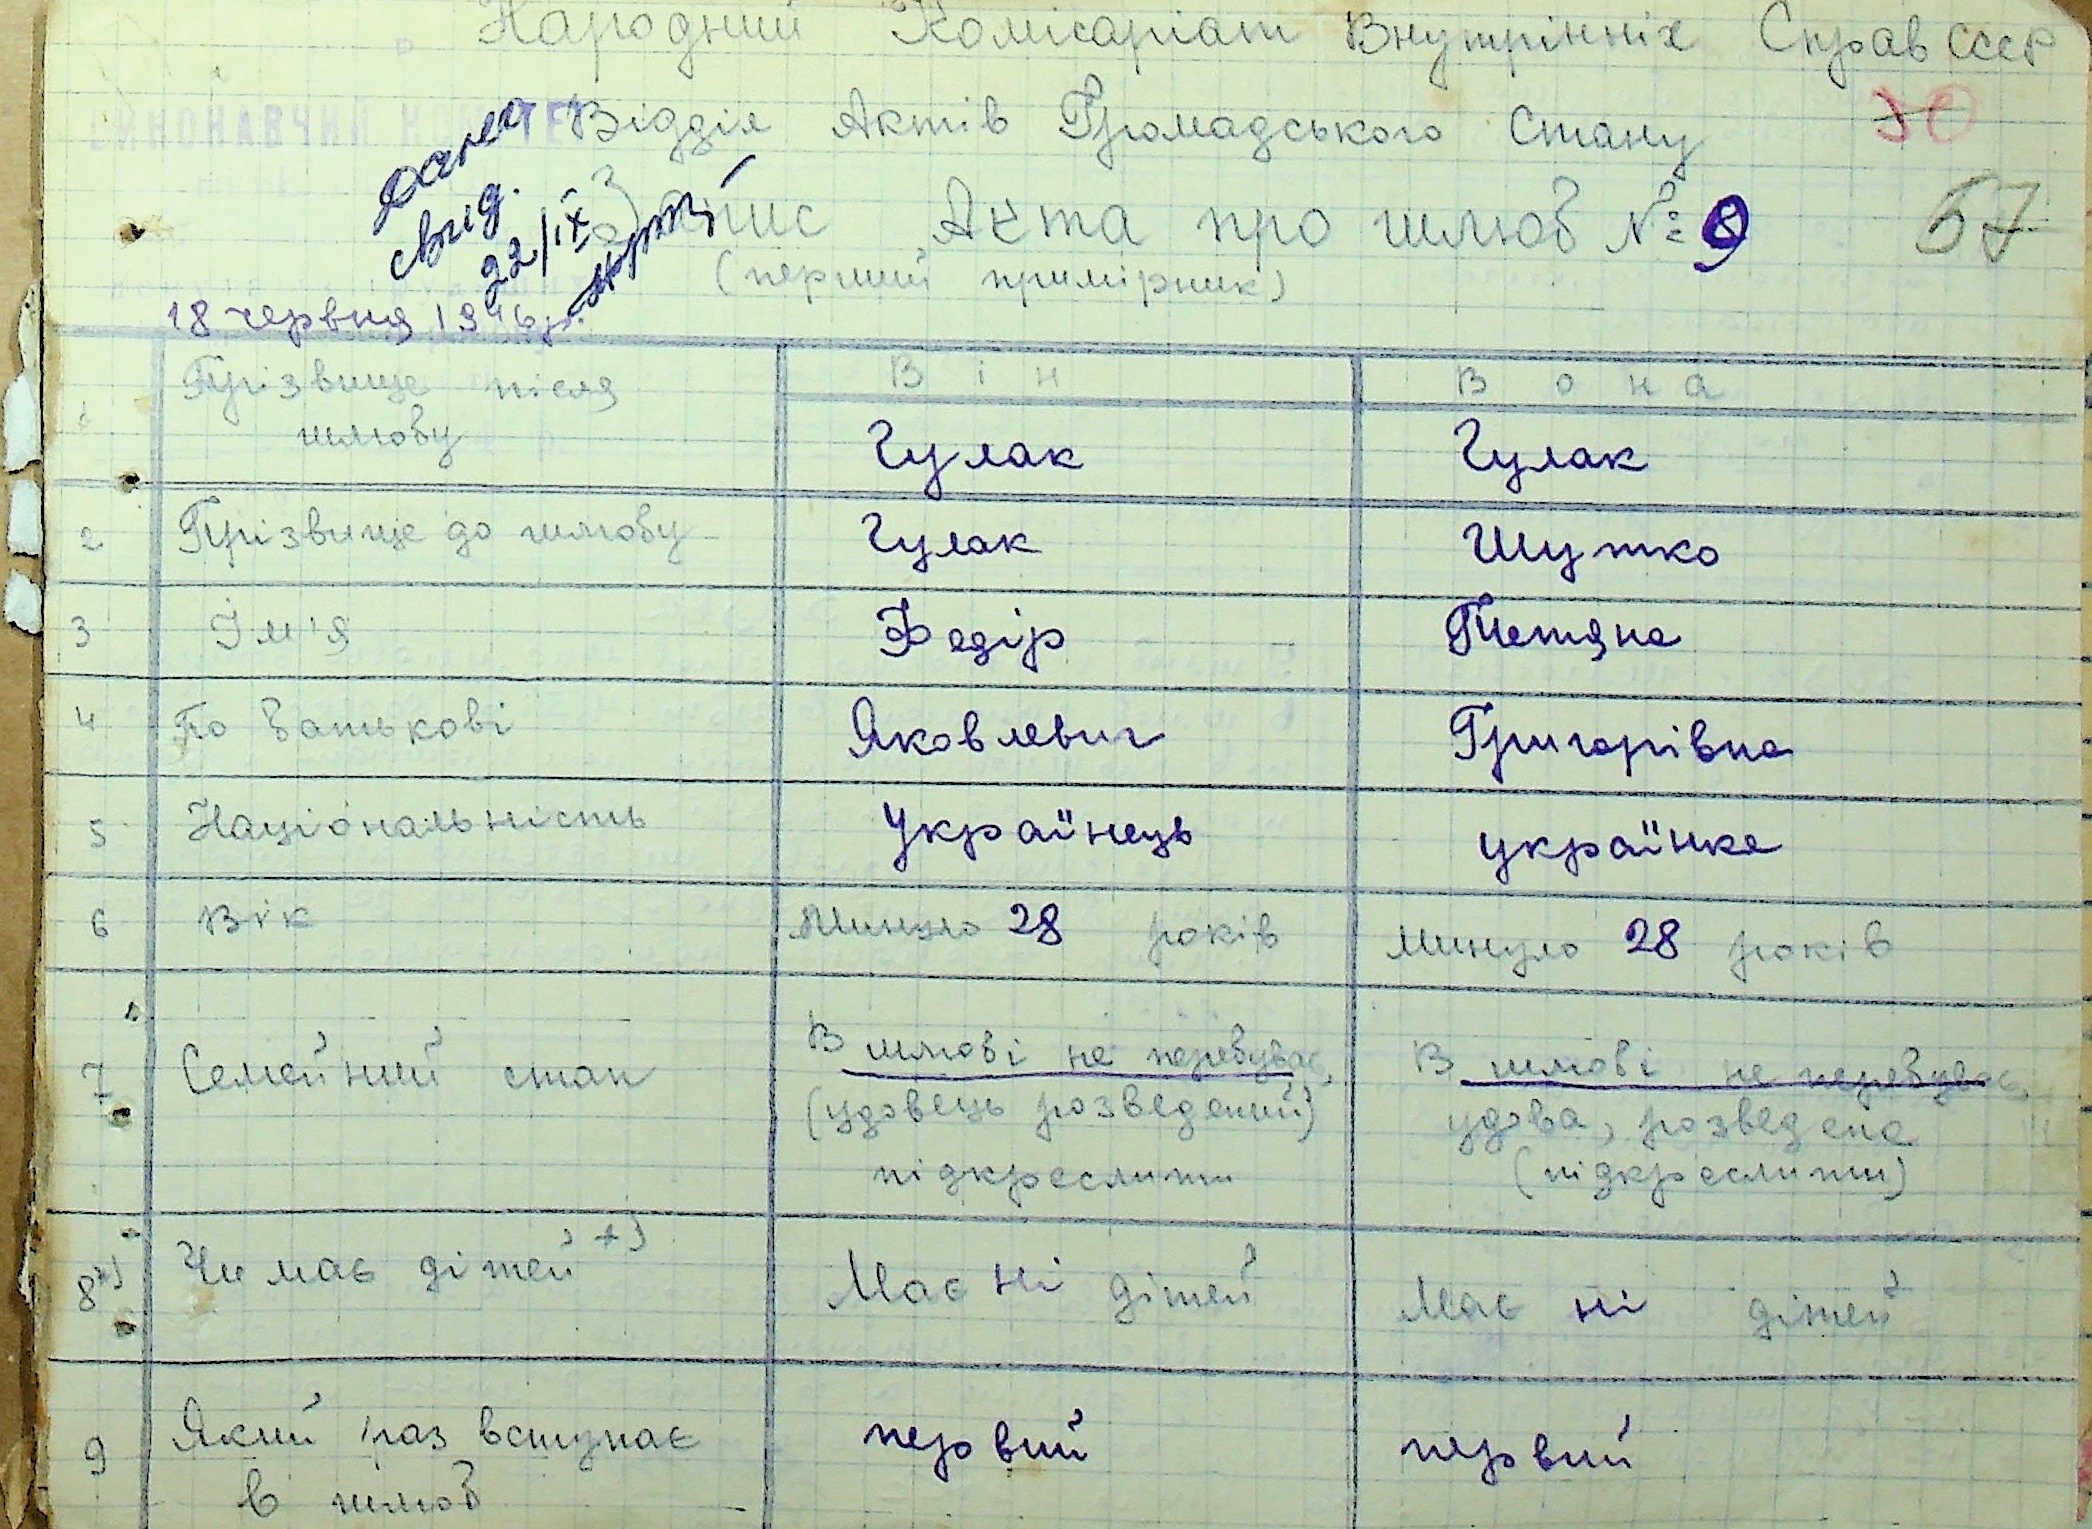 Народний Комісаріат Внутрінніх Справ СССР
Відділ Актів Громадського Стану
30
Запис Акта про шлюб № 9
67
(перший примірник)
свид.
22/IX
18 червня 1946 р.
Він Вона
1 Прізвище після шлюбу Гулак Гулак
2 Прізвище до шлюбу Гулак Шутко
3 Ім'я Федір Тетяна
4 По батькові Яковлевич Григорівна
5 Національність Українець українка
6 Вік Минуло 28 років минуло 28 років
7 Семейний стан
В шлюбі не перебуває, В шлюбі не перебуває,
(удовець розведений) удова, розведена
підкреслити (підкреслити)
8*) Чи має дітей +) Має ні дітей Має ні дітей
9 Який раз вступає первий первий
в шлюб